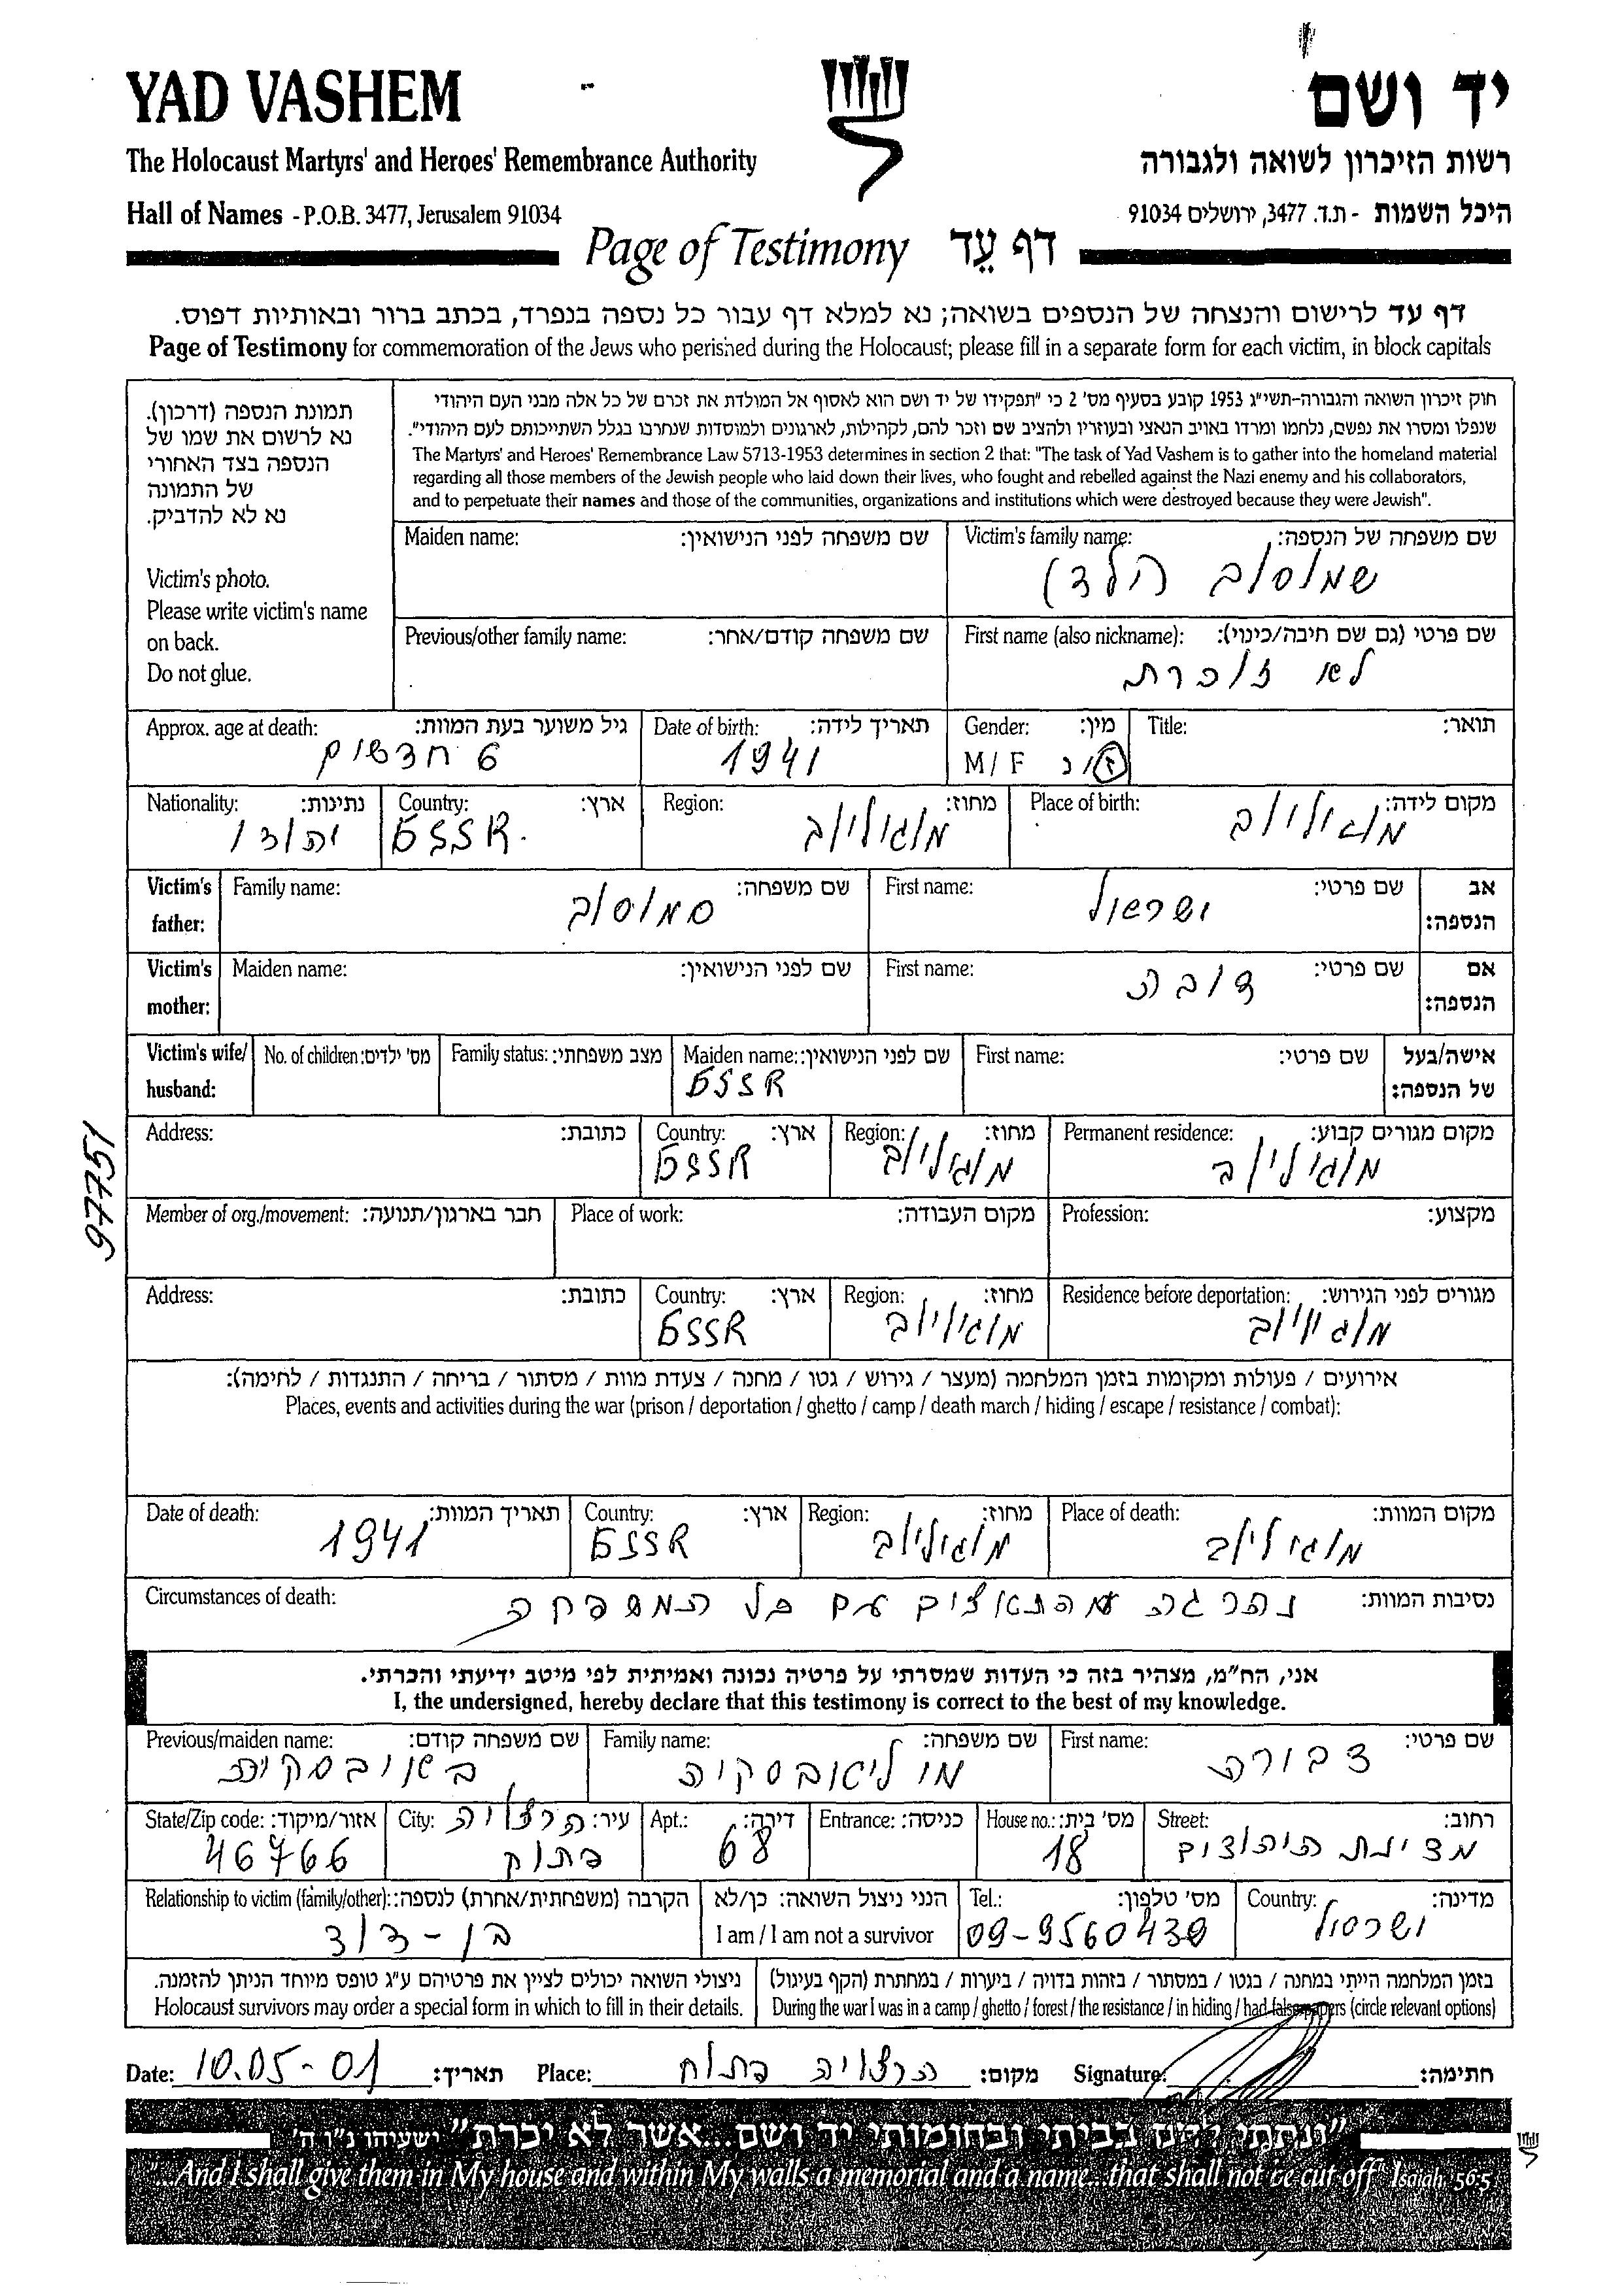 YAD VASHEM
יד ושם
The Holocaust Martyrs' and Heroes' Remembrance Authority
רשות הזיכרון לשואה ולגבורה
Hall of Names - P.O.B. 3477, Jerusalem 91034
היכל השמות - ת.ד. 3477, ירושלים 91034
Page of Testimony דף עֵד
דף עד לרישום והנצחה של הנספים בשואה; נא למלא דף עבור כל נספה בנפרד, בכתב ברור ובאותיות דפוס.
Page of Testimony for commemoration of the Jews who perished during the Holocaust; please fill in a separate form for each victim, in block capitals
תמונת הנספה (דרכון).
נא לרשום את שמו של
הנספה בצד האחורי
של התמונה
נא לא להדביק.
Victim's photo.
Please write victim's name
on back.
Do not glue.
חוק זיכרון השואה והגבורה-תשי"ג 1953 קובע בסעיף מס' 2 כי "תפקידו של יד ושם הוא לאסוף אל המולדת את זכרם של כל אלה מבני העם היהודי
שנפלו ומסרו את נפשם, נלחמו ומרדו באויב הנאצי ובעוזריו ולהציב שם וזכר להם, לקהילות, לארגונים ולמוסדות שנחרבו בגלל השתייכותם לעם היהודי".
The Martyrs' and Heroes' Remembrance Law 5713-1953 determines in section 2 that: "The task of Yad Vashem is to gather into the homeland material
regarding all those members of the Jewish people who laid down their lives, who fought and rebelled against the Nazi enemy and his collaborators,
and to perpetuate their names and those of the communities, organizations and institutions which were destroyed because they were Jewish".
Maiden name: שם משפחה לפני הנישואין:
Victim's family name: שם משפחה של הנספה:
שמוסוב (הלד)
Previous/other family name: שם משפחה קודם/אחר:
First name (also nickname): שם פרטי (גם שם חיבה/כינוי):
לא זוכרת
Approx. age at death: גיל משוער בעת המוות:
6 חדשום
Date of birth: תאריך לידה:
1941
Gender: מין:
M / F ז/נ
Title: תואר:
Nationality: נתינות:
יהודו
Country: ארץ:
БSSR.
Region: מחוז:
מוגוליוב
Place of birth: מקום לידה:
מוגוליוב
Victim's father: Family name: שם משפחה:
סמוסוב
First name: שם פרטי:
ושראול
אב הנספה:
Victim's mother: Maiden name: שם לפני הנישואין:
First name: שם פרטי:
דובה
אם הנספה:
Victim's wife/ husband: No. of children: מס' ילדים:
Family status: מצב משפחתי:
Maiden name: שם לפני הנישואין:
БSSR
First name: שם פרטי:
אישה/בעל של הנספה:
Address: כתובת:
Country: ארץ:
БSSR
Region: מחוז:
מוגיליוב
Permanent residence: מקום מגורים קבוע:
מוגיליוב
97751
Member of org./movement: חבר בארגון/תנועה:
Place of work: מקום העבודה:
Profession: מקצוע:
Address: כתובת:
Country: ארץ:
БSSR
Region: מחוז:
מוגיליוב
Residence before deportation: מגורים לפני הגירוש:
מוגיליוב
אירועים / פעולות ומקומות בזמן המלחמה (מעצר / גירוש / גטו / מחנה / צעדת מוות / מסתור / בריחה / התנגדות / לחימה):
Places, events and activities during the war (prison / deportation / ghetto / camp / death march / hiding / escape / resistance / combat):
Date of death: תאריך המוות:
1941
Country: ארץ:
БSSR
Region: מחוז:
מוגיליוב
Place of death: מקום המוות:
מוגיליוב
Circumstances of death: נסיבות המוות:
נהרגה עם כל המשפחה
אני, הח"מ, מצהיר בזה כי העדות שמסרתי על פרטיה נכונה ואמיתית לפי מיטב ידיעתי והכרתי.
I, the undersigned, hereby declare that this testimony is correct to the best of my knowledge.
Previous/maiden name: שם משפחה קודם:
Family name: שם משפחה:
First name: שם פרטי:
דבורה
State/Zip code: אזור/מיקוד:
46766
City: עיר:
הרצלוה
פתוק
Apt.: דירה:
68
Entrance: כניסה:
House no.: מס' בית:
18
Street: רחוב:
מדינת היהודים
Relationship to victim (family/other): הקרבה (משפחתית/אחרת) לנספה:
בן-דוד
הנני ניצול השואה: כן/לא
I am / I am not a survivor
Tel.: מס' טלפון:
09-9560439
Country: מדינה:
ושרטול
ניצולי השואה יכולים לציין את פרטיהם ע"ג טופס מיוחד הניתן להזמנה.
Holocaust survivors may order a special form in which to fill in their details.
בזמן המלחמה הייתי במחנה / בגטו / במסתור / בזהות בדויה / ביערות / במחתרת (הקף בעיגול)
During the war I was in a camp / ghetto / forest / the resistance / in hiding / had false papers (circle relevant options)
Date: 10.05-01 תאריך:
Place: הרצלוה פתוח מקום:
Signature: חתימה:
"ונתתי להם בביתי ובחומותי יד ושם...אשר לא יכרת" ישעיהו נ"ו ה'
...And I shall give them in My house and within My walls a memorial and a name...that shall not be cut off" Isaiah 56:5